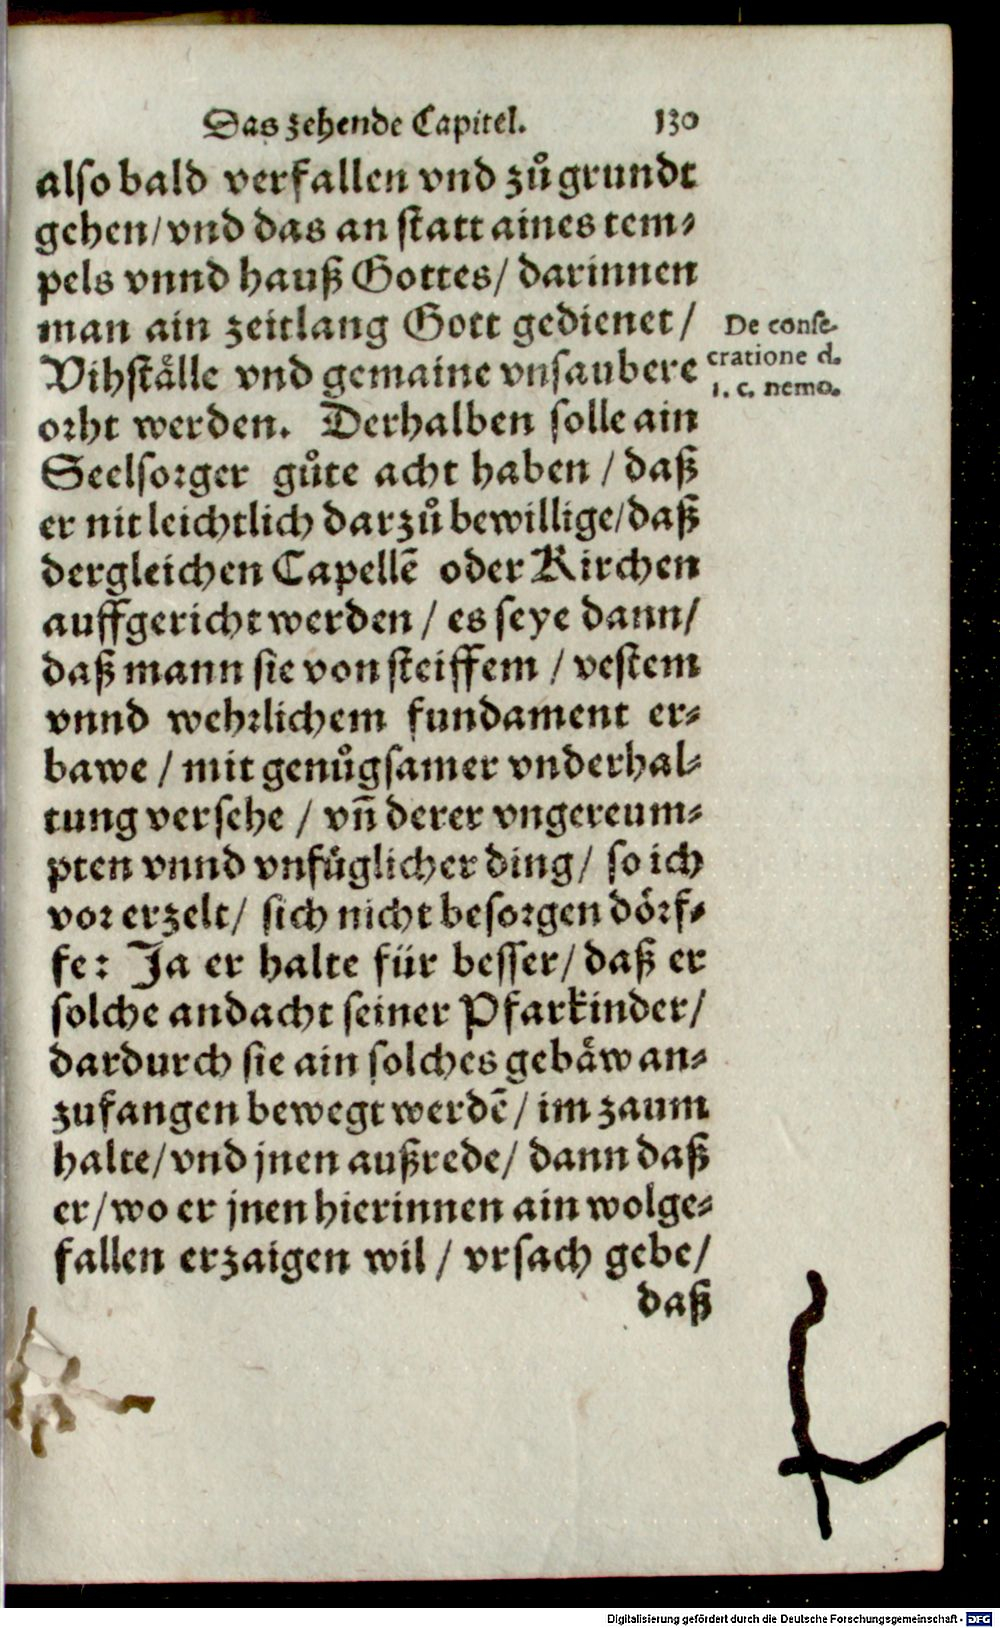 Das zehende Capitel. 130
also bald verfallen vnd zů grundt
gehen/ vnd das an statt aines tem⸗
pels vnnd hauß Gottes/ darinnen
man ain zeitlang Gott gedienet/
Vihställe vnd gemaine vnsaubere
orht werden. Derhalben solle ain
Seelsorger gůte acht haben / daß
er nit leichtlich darzů bewillige/ daß
dergleichen Capellẽ oder Kirchen
auffgericht werden / es seye dann/
daß mann sie von steiffem / vestem
vnnd wehrlichem fundament er⸗
bawe / mit genůgsamer vnderhal⸗
tung versehe / vñ derer vngereum⸗
pten vnnd vnfůglicher ding/ so ich
vor erzelt/ sich nicht besorgen dörf⸗
fe: Ja er halte für besser/ daß er
solche andacht seiner Pfarkinder/
dardurch sie ain solches gebäw an⸗
zufangen bewegt werdẽ/ im zaum
halte/ vnd jnen außrede/ dann daß
er/ wo er jnen hierinnen ain wolge⸗
fallen erzaigen wil / vrsach gebe/
daß
De conse-
cratione d.
1. c. nemo.
Digitalisierung gefördert durch die Deutsche Forschungsgemeinschaft - DFG